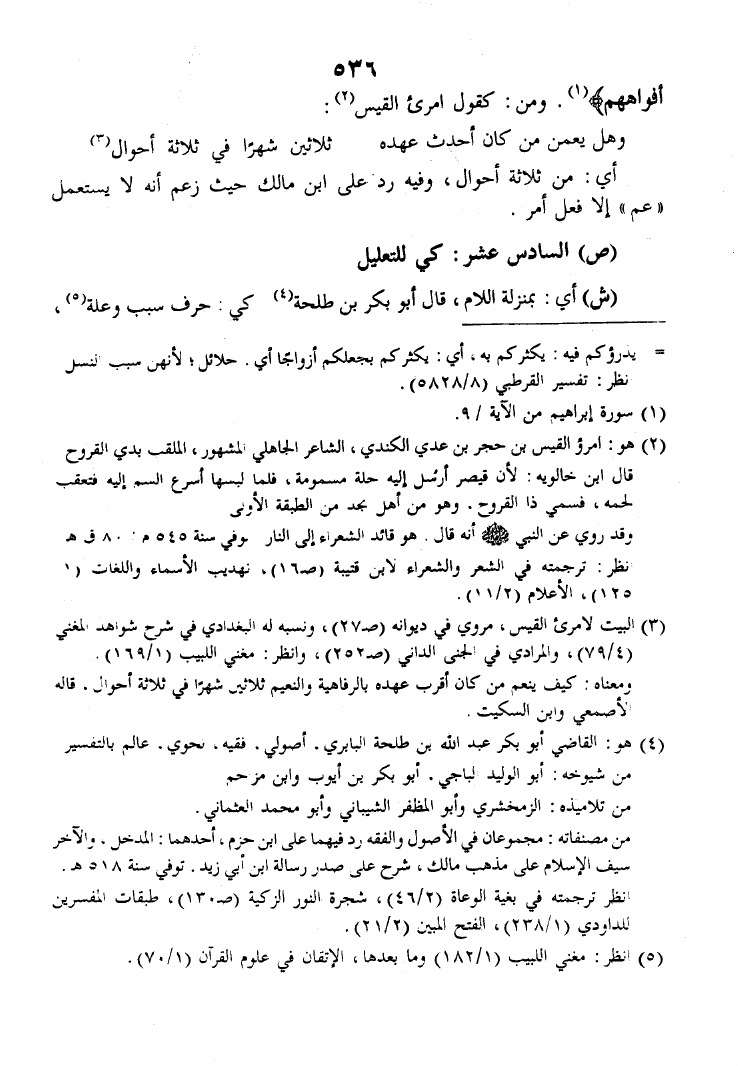 ٥٣٦
أفواههم﴾(١) . ومن : كقول امرئ القيس(٢) :
وهل يعمن من كان أحدث عهده ثلاثين شهرًا في ثلاثة أحوال(٣)
أي : من ثلاثة أحوال ، وفيه رد على ابن مالك حيث زعم أنه لا يستعمل
« عم » إلا فعل أمر .
(ص) السادس عشر : كي للتعليل
(ش) أي : بمنزلة اللام ، قال أبو بكر بن طلحة(٤) كي : حرف سبب وعلة(٥) ،
= يذرؤكم فيه : يكثركم به ، أي : يكثركم بجعلكم أزواجًا أي . حلائل ؛ لأنهن سبب النسل
نظر : تفسير القرطبي (٥٨٢٨/٨) .
(١) سورة إبراهيم من الآية / ٩.
(٢) هو : امرؤ القيس بن حجر بن عدي الكندي ، الشاعر الجاهلي المشهور ، الملقب بذي القروح
قال ابن خالويه : لأن قيصر أرسل إليه حلة مسمومة ، فلما لبسها أسرع السم إليه فتعقب
لحمه ، فسمي ذا القروح . وهو من أهل نجد من الطبقة الأولى
وقد روي عن النبي ﷺ أنه قال . هو قائد الشعراء إلى النار وفي سنة ٥٤٥ م . ٨٠ ق هـ
نظر : ترجمته في الشعر والشعراء لابن قتيبة (ص١٦) ، تهذيب الأسماء واللغات (١
١٢٥) ، الأعلام (١١/٢) .
(٣) البيت لامرئ القيس ، مروي في ديوانه (ص٢٧) ، ونسبه له البغدادي في شرح شواهد المغني
(٧٩/٤) ، والمرادي في الجنى الداني (ص٢٥٢) ، وانظر : مغني اللبيب (١٦٩/١) .
ومعناه : كيف ينعم من كان أقرب عهده بالرفاهية والنعيم ثلاثين شهرًا في ثلاثة أحوال . قاله
الأصمعي وابن السكيت .
(٤) هو : القاضي أبو بكر عبد الله بن طلحة اليابري . أصولي . فقيه . نحوي . عالم بالتفسير
من شيوخه : أبو الوليد الباجي . أبو بكر بن أيوب وابن مزحم
من تلاميذه : الزمخشري وأبو المظفر الشيباني وأبو محمد العثماني.
من مصنفاته : مجموعان في الأصول والفقه رد فيهما على ابن حزم ، أحدهما : المدخل . والآخر
سيف الإسلام على مذهب مالك ، شرح على صدر رسالة ابن أبي زيد . توفي سنة ٥١٨ هـ .
انظر ترجمته في بغية الوعاة (٤٦/٢) ، شجرة النور الزكية (ص١٣٠) ، طبقات المفسرين
للداودي (٢٣٨/١) ، الفتح المبين (٢١/٢) .
(٥) انظر : مغني اللبيب (١٨٢/١) وما بعدها ، الإتقان في علوم القرآن (٧٠/١) .